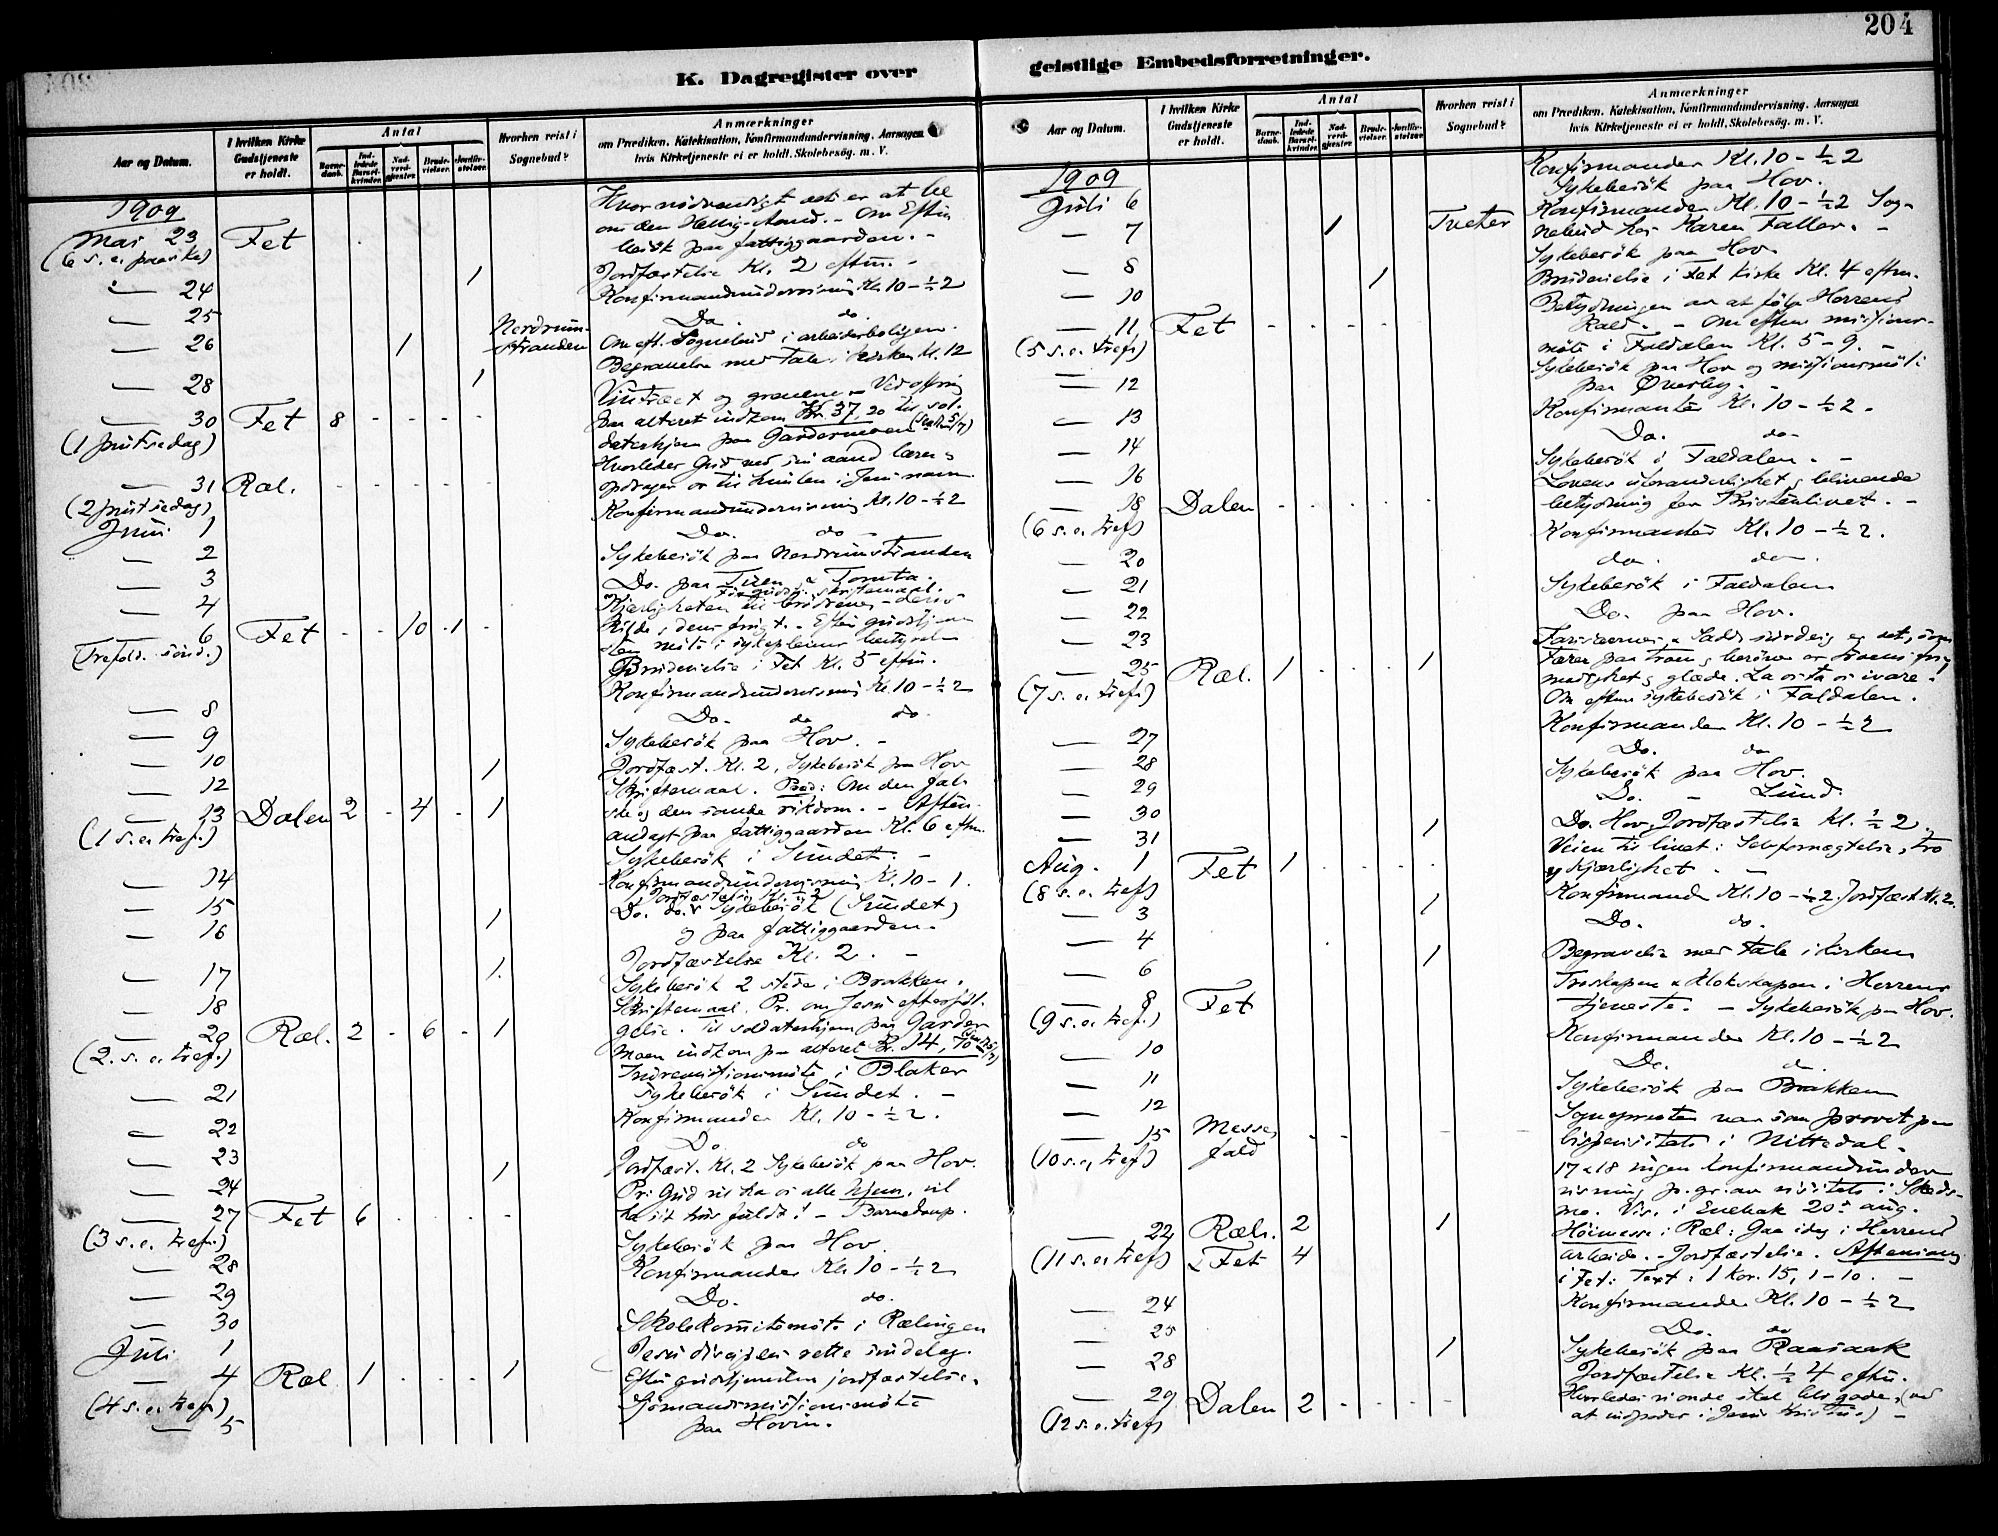 204
K. Dagregister over
geistlige Embedsforretninger.
Aar og Datum.
I hvilken Kirke Gudstjeneste er holdt.
Antal
Barne-daab.
Ind-ledede Barsel-kvinder.
Nad-verd-gjester.
Brude-vielser.
Jordfæ-stelser.
Hvorhen reist i Sognebud?
Anmærkninger
om Prædiken, Katekisation, Konfirmandundervisning, Aarsagen
hvis Kirketjeneste ei er holdt, Skolebesøg. m. V.
1909
Hvor nödvendigt det er at be
Mai 23 Fet
om den Hellig-Aand. - Om Eftm
(6 s. e. paaske)
besök paa fattiggaarden. -
Jordfæstelse Kl. 2 eftm. -
— 24 1
Konfirmandundervisning Kl. 10 - ½ 2
— 25
Do. do.
— 26 1 Nerdrum-stranden
Om eft. Sognebud i arbeiderboligen.
Begravelse med Tale i Kirken Kl. 12
— 28 1
— 30 Fet 8
paa alteret indkom Kr. 37,20 til sol-
(1 pintsedag)
daterhjem paa Gardermoen
Hvorledes Gud ved sin aand lærer
— 31 Ræl.
opdrager os til himlen i Jesu navn
(2 pintsedag)
Konfirmandundervisning Kl. 10 - ½ 2
Juni 1
Do. do
— 2
Sykebesök paa Nerdrumstranden
— 3
Do. paa Tien & Tomta.
— 4
Kjærligheten til brödrene - dens
— 6 Fet 10 1
Kilde, dens frugt. - Efter gudstjene
(Trefold. sönd.)
sten möte i sykepleien
Brudevielse i Fet Kl. 5 eftm.
Konfirmandundervisning Kl. 10 - ½ 2
— 8
Do. do do.
— 9
Sykebesök paa Hov. -
— 10 1
Jordfæst. Kl. 2, Sykebesök paa Hov
— 12
Skriftemaal. Præd: Om den fal-
— 13 Dalen 2 - 4 - 1
ske og den sande rikdom. - Aften-
(1 s. e. tref.)
andagt paa fattiggaarden Kl. 6 eftm.
Sykebesök i Sundet. -
— 14
Konfirmandundervisning Kl. 10 - 1.
Jordfæstelse Kl. 2
— 15
Do. do. & Sykebesök (Sundet)
— 16 1
og paa fattiggaarden.
Jordfæstelse Kl. 2. -
— 17 1
Sykebesök 2 steder i Brakken.
— 18
Skriftemaal. Pr. om Jesu efterföl-
— 20 Ræl. 2 - 6 - 1
gelse. Til soldaterhjem paa Garder
(2. s. e. tref.)
moen indkom paa alteret Kr. 14,70
Indremissionsmöte i Blaker
— 21
Sykebesök i Sundet. -
Konfirmander Kl. 10 - ½ 2.
— 22
Do do
— 23 1
Jordfæst. Kl. 2 Sykebesök paa Hov.
— 24
Pr: Gud vil ha os alle hjem, vil
— 27 Fet 6
ha sit hus fuldt! - Barnedaap.
(3 s. e. tref.)
Sykebesök paa Hov.
— 28
Konfirmander Kl. 10 - ½ 2
— 29
Do. do.
— 30
Skolekomitemöte i Rælingen
Juli 1
Jesu disciples rette sindelag.
— 4 Ræl 1 1
Efter gudstjenesten jordfæstelse.
(4 s. e. tref.)
Sjömandsmissionsmöte
— 5
paa Hovin.
Aar og Datum.
I hvilken Kirke Gudstjeneste er holdt.
Antal
Barne-daab.
Ind-ledede Barsel-kvinder.
Nad-verd-gjester.
Brude-vielser.
Jordfæ-stelser.
Hvorhen reist i Sognebud?
Anmærkninger
om Prædiken, Katekisation, Konfirmandundervisning, Aarsagen
hvis Kirketjeneste ei er holdt, Skolebesøg. m. V.
1909
Konfirmander Kl. 10 - ½ 2
Sykebesök paa Hov.
Juli 6
Konfirmander Kl. 10 - ½ 2 Sog-
— 7 1 Tveter
nebud hos Karen Faller. -
Sykebesök paa Hov.
— 8 1
Brudevielse i Fet Kirke Kl. 4 eftm.
— 10
Betydningen av at följe Herrens
— 11 Fet
Kald. - Om eftm missions-
(5 s. e. tref.)
möte i Faldalen Kl. 5 - 9. -
Sykebesök paa Hov og missionsmöte
— 12
paa Överby. -
Konfirmanter Kl. 10 - ½ 2.
— 13
Do. do
— 14
Sykebesök i Faldalen. -
— 16
Lovens uforanderlighet & blivende
— 18 Dalen
betydning for Kristenlivet. -
(6 s. e. tref.)
Konfirmanter Kl. 10 - ½ 2.
— 20
do. do
— 21
Sykebesök i Faldalen
— 22
Do. paa Hov.
— 23
— 25 Ræl. 1 1
(7 s. e. tref.)
Om eftm sykebesök i Faldalen.
Konfirmander Kl. 10 - ½ 2
— 27
Do. do
— 28
Sykebesök paa Hov.
— 29
Do. - Lund
— 30
Do. Hov, Jordfæstelse Kl. ½ 2.
— 31 1
Veien til livet: Selvfornægtelse, tro
Aug. 1 Fet 1
og Kjærlighet. -
(8 s. e. tref.)
Konfirmander Kl. 10 - ½ 2. Jordfæst. Kl. 2.
— 3 1
Do. do.
— 4
Begravelse med tale i kirken
— 6 1
Troskapen & Klokskapen i Herrens
— 8 Fet
tjeneste. - Sykebesök paa Hov.
(9 s. e. tref.)
Konfirmander Kl. 10 - ½ 2
— 10
Do. do.
— 11
Sykebesök paa Brakken
— 12
Sognepresten var som provst paa
— 15 Messefald
bispevisitats i Nittedal.
(10 s. e. tref.)
17 & 18 ingen konfirmandunder
visning p. gr. av visitats i Skeds-
mo. Vis. i Enebak 20de aug.
— 22 Ræl. 2 1
Höimesse i Ræl: Gaa idag i Herrens
(11 s. e. tref) & Fet 4
arbeide. - Jordfæstelse. Aftensang
i Fet: Text: 1 Kor. 15, 1-10. -
— 24
Konfirmander Kl. 10 - ½ 2
— 25
Do. do
— 28 1
Sykebesök paa Raasaak
Jordfæstelse Kl. ½ 4 eftm.
— 29 Dalen 2
Hvorledes vi onde skal bli gode, (ved
(12 s. e. tref)
at indpodes i Jesus Kristus) -